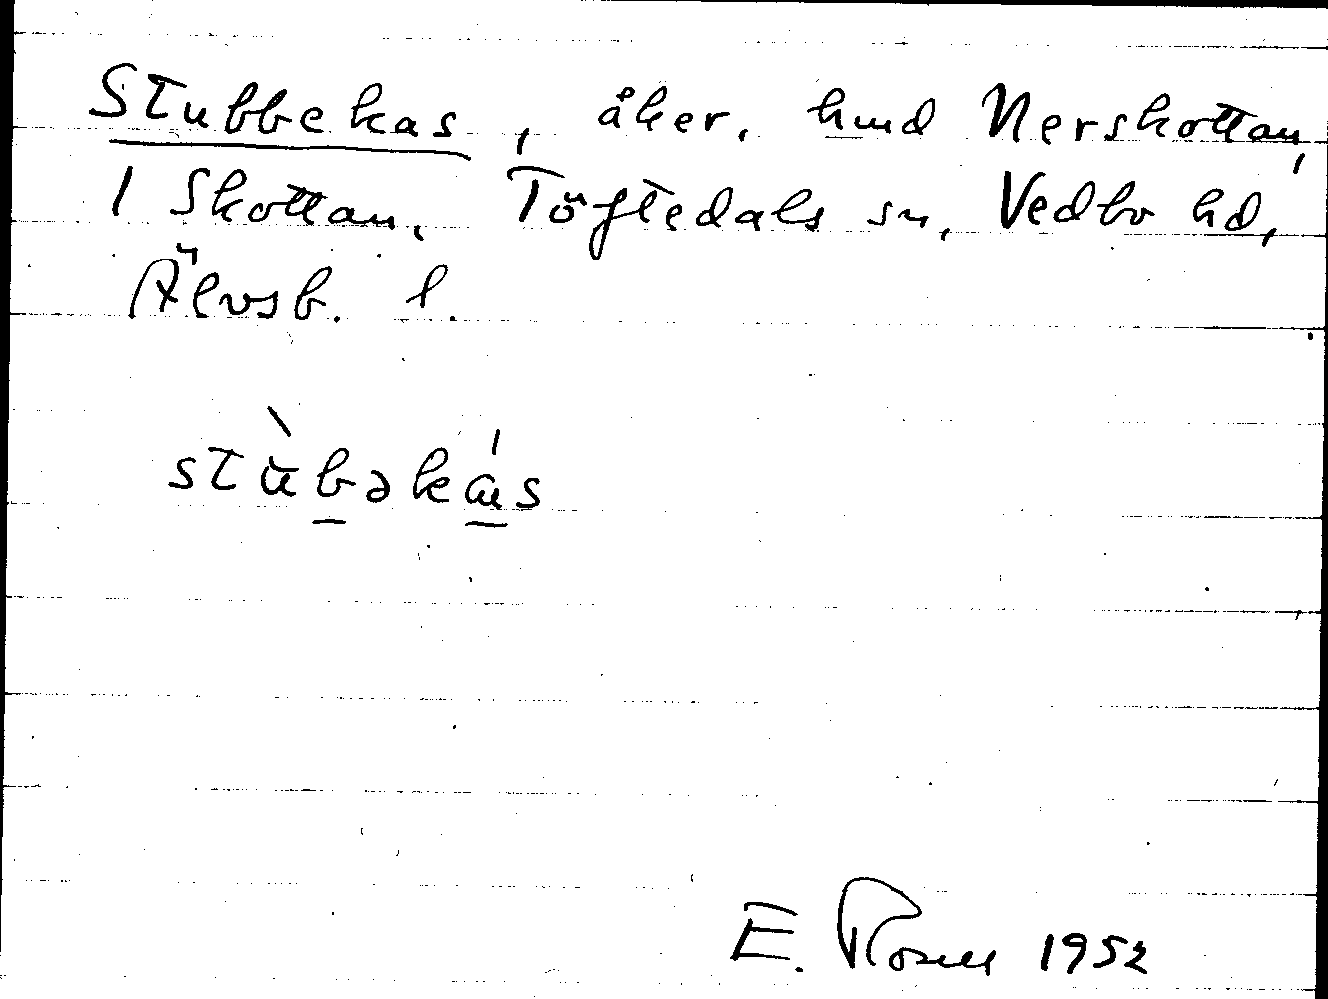 Stubbekas, åker, hmd Nerskottan,
1 Skottan. Töftedals sn, Vedbo hd,
Älvsb. l.
stu̇̀bəkás
E. Rosell 1952